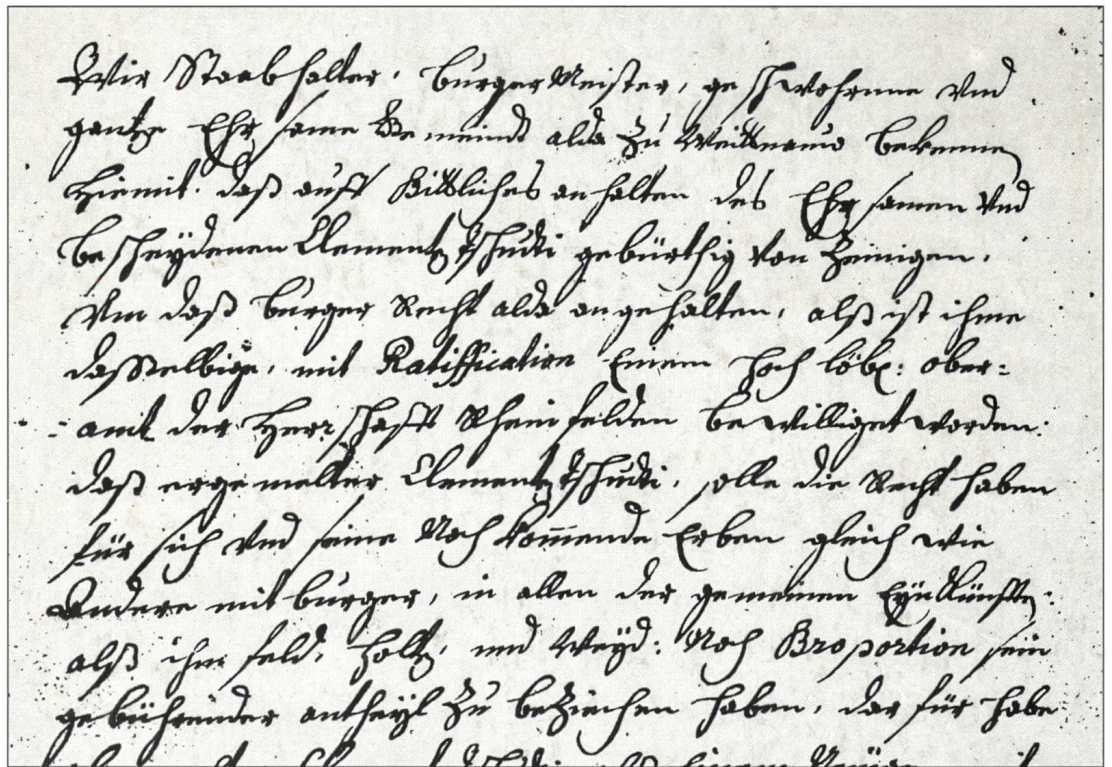 Wir Staabhalter, burger Meister, geschwohrnne vnd
gantze Ehrsame Gemeindt alda zu Wittnauw bekenne
Hiemit. daß auff Bittliches anhalten des Ehrsamen vnd
bescheydenen Clementz Tschudi gebürthig von Zeinigen.
vm daß burger Recht alda angehalten, alß ist ihme
dasselbige, mit Ratiffication Einem Hoch löbl: ober=
amt der Herrschafft Rheinfelden bewilliget worden:
daß ergemelter Clementz Tschudi, solle die Recht haben
für sich vnd seine Nach kom̄ende Erben gleich wie
Andere mit burger, in allen der gemeinen Eynkünffte:
alß ihn feld, Holtz, und Weyd: Nach Broportion sein
gebührender antheyl zu beziechen haben, dar für habe